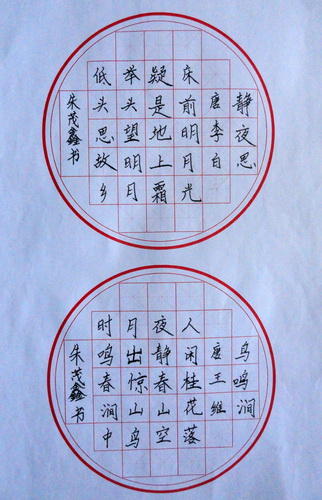 静夜思
唐李白
床前明月光
疑是地上霜
举头望明月
低头思故乡
朱茂鑫书
鸟鸣涧
唐王维
人闲桂花落
夜静春山空
月出惊山鸟
时鸣春涧中
朱茂鑫书